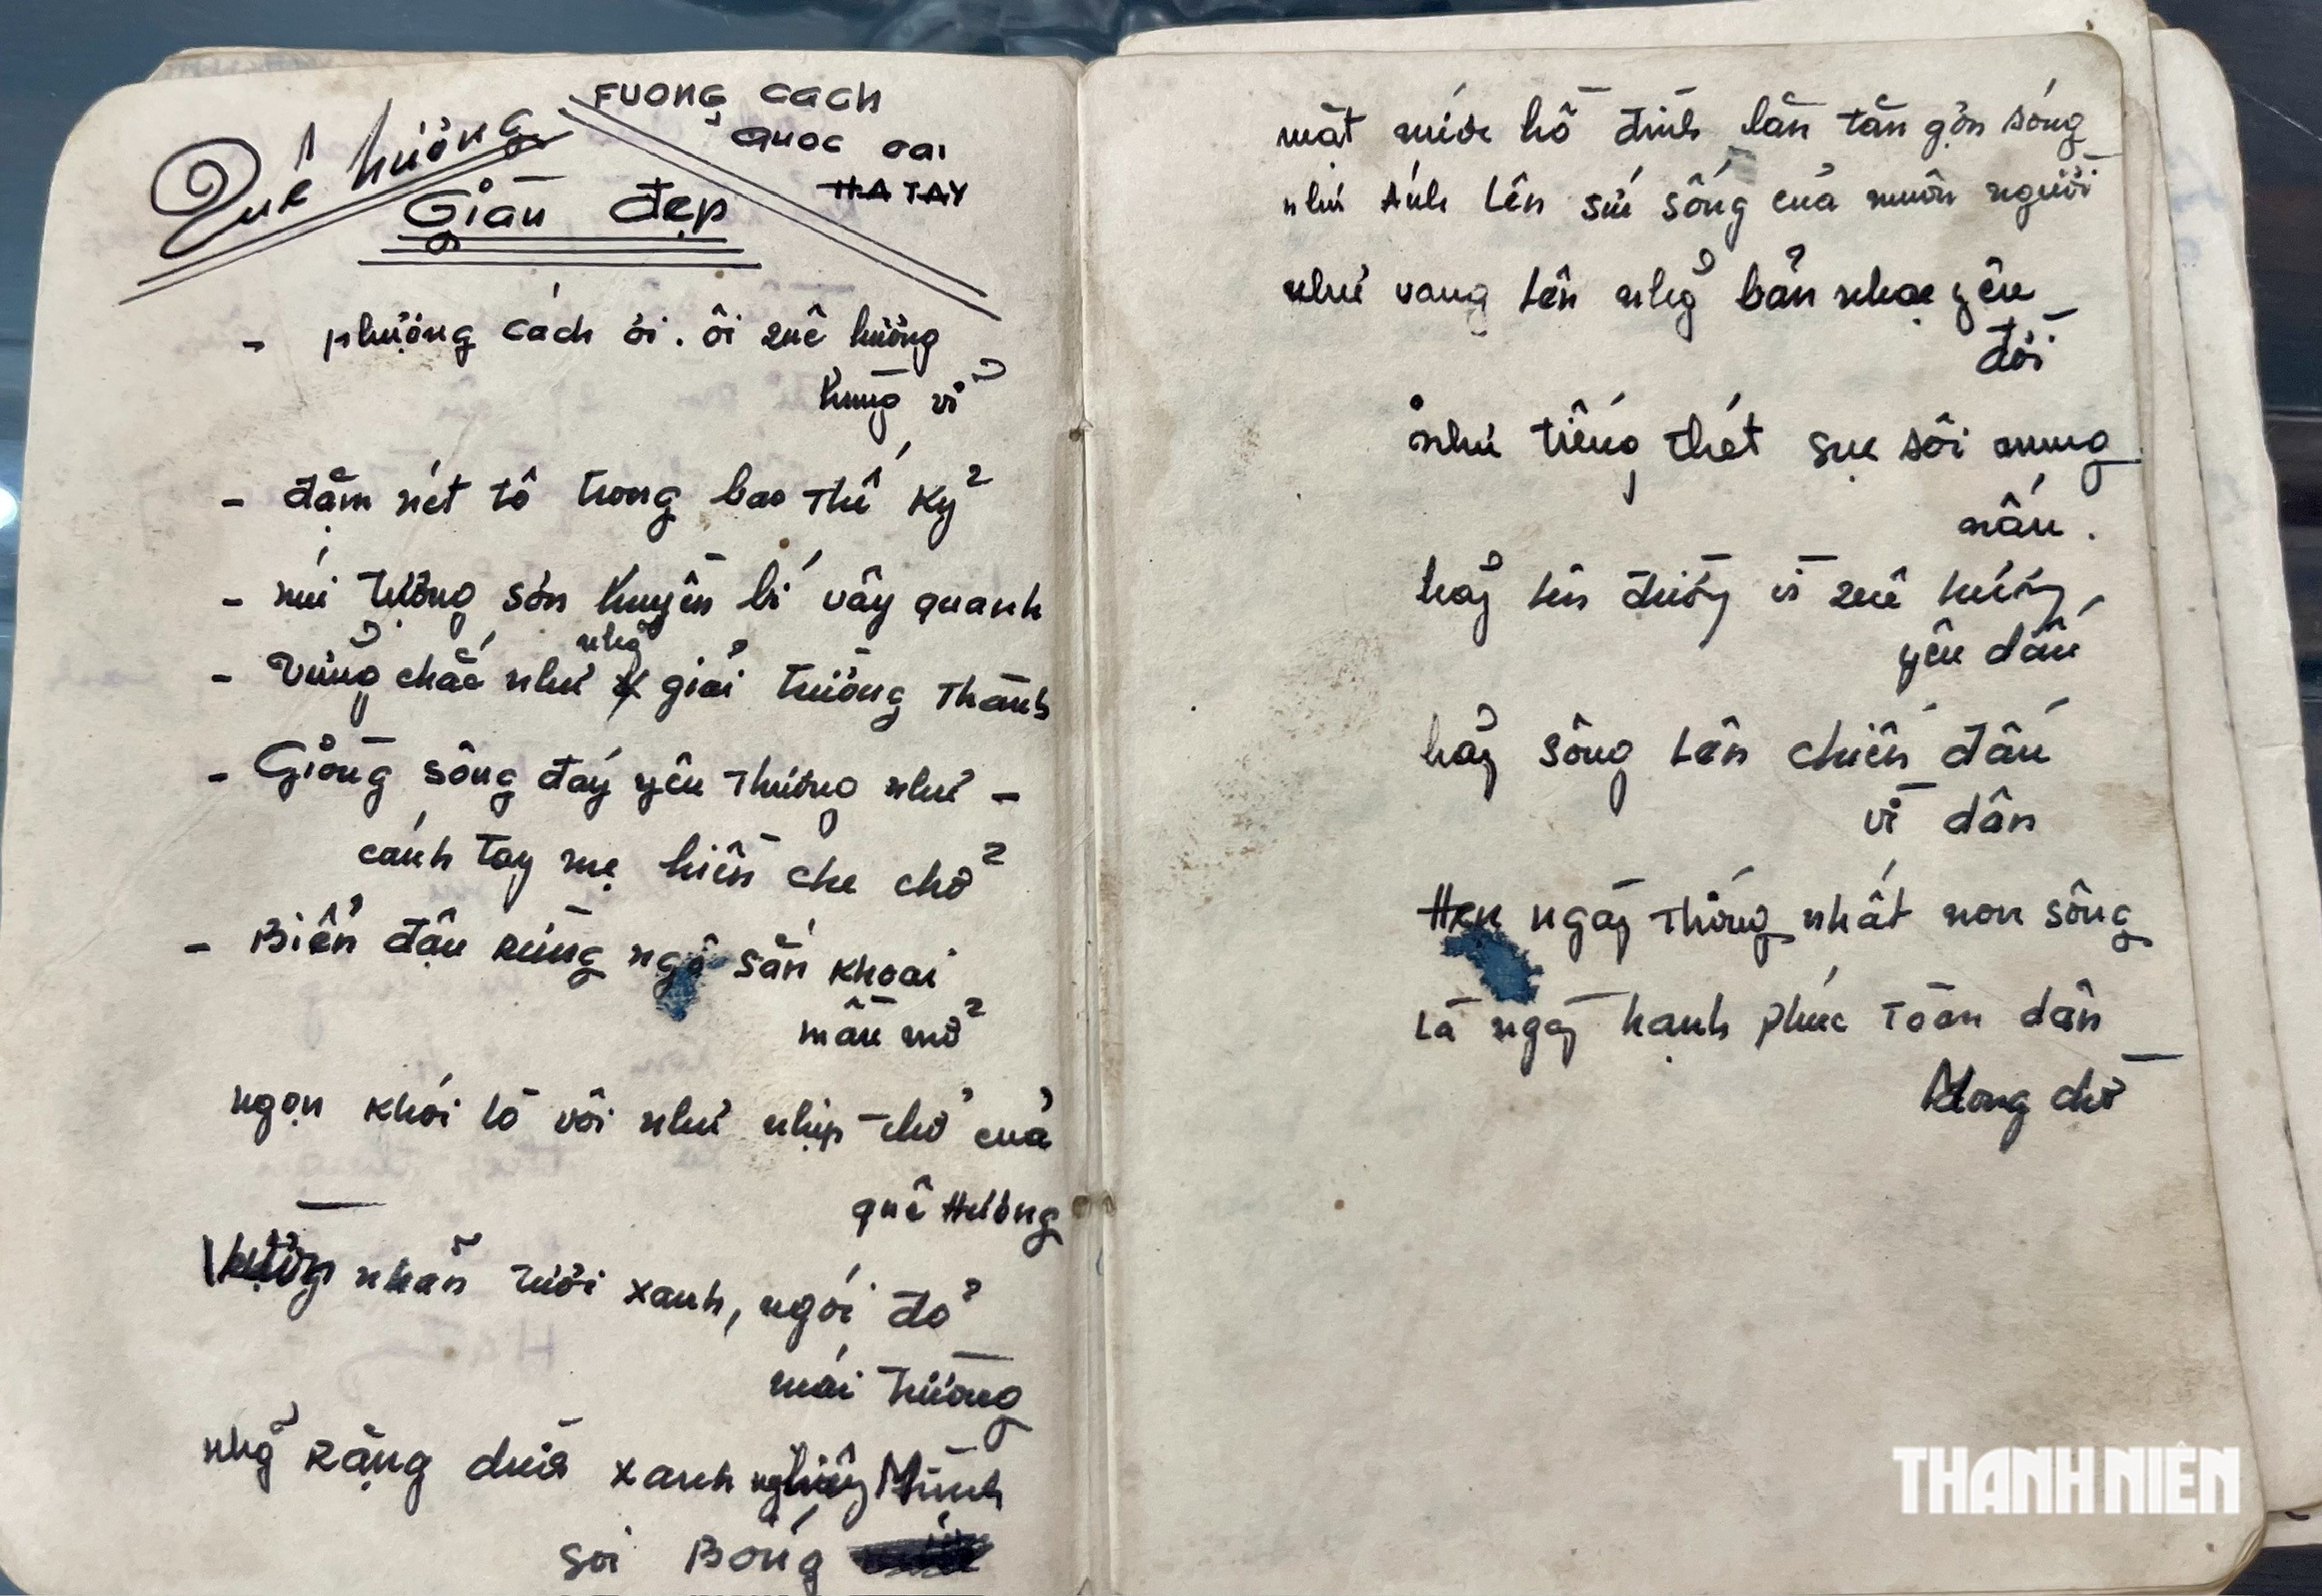 Quê hương
FUONG CACH
QUOC OAI
HA TAY
Giàu đẹp
- phượng cách ơi. ôi quê hương
hùng vĩ
- đậm nét tô trong bao thế kỷ
- núi tượng sơn huyền bí vây quanh
nhg̃
- Vững chắc như giải trường Thành
- Giòng sông đáy yêu thương như -
cánh tay mẹ hiền che chở
- Biển đậu rừng ngô sắn khoai
mầu mỡ
ngọn khói lò vôi như nhịp thở của
quê Hương
Vườn nhãn tươi xanh, ngói đỏ
mái trường
nhg̃ Rặng dừa xanh nghiêng Mình
soi Bóng
mặt nước hồ đình lăn tăn gợn sóng
như Ánh Lên sức sống của muôn người
như vang Lên nhg̃ bản nhạc yêu
đời
như tiếng thét sục sôi nung
nấu.
hãy lên đường vì quê hương
yêu dấu
hãy sống Lên chiến đấu
vì dân
Hẹn ngày Thống nhất non sông
Là ngày hạnh phúc Toàn dân
Mong chờ
THANH NIÊN